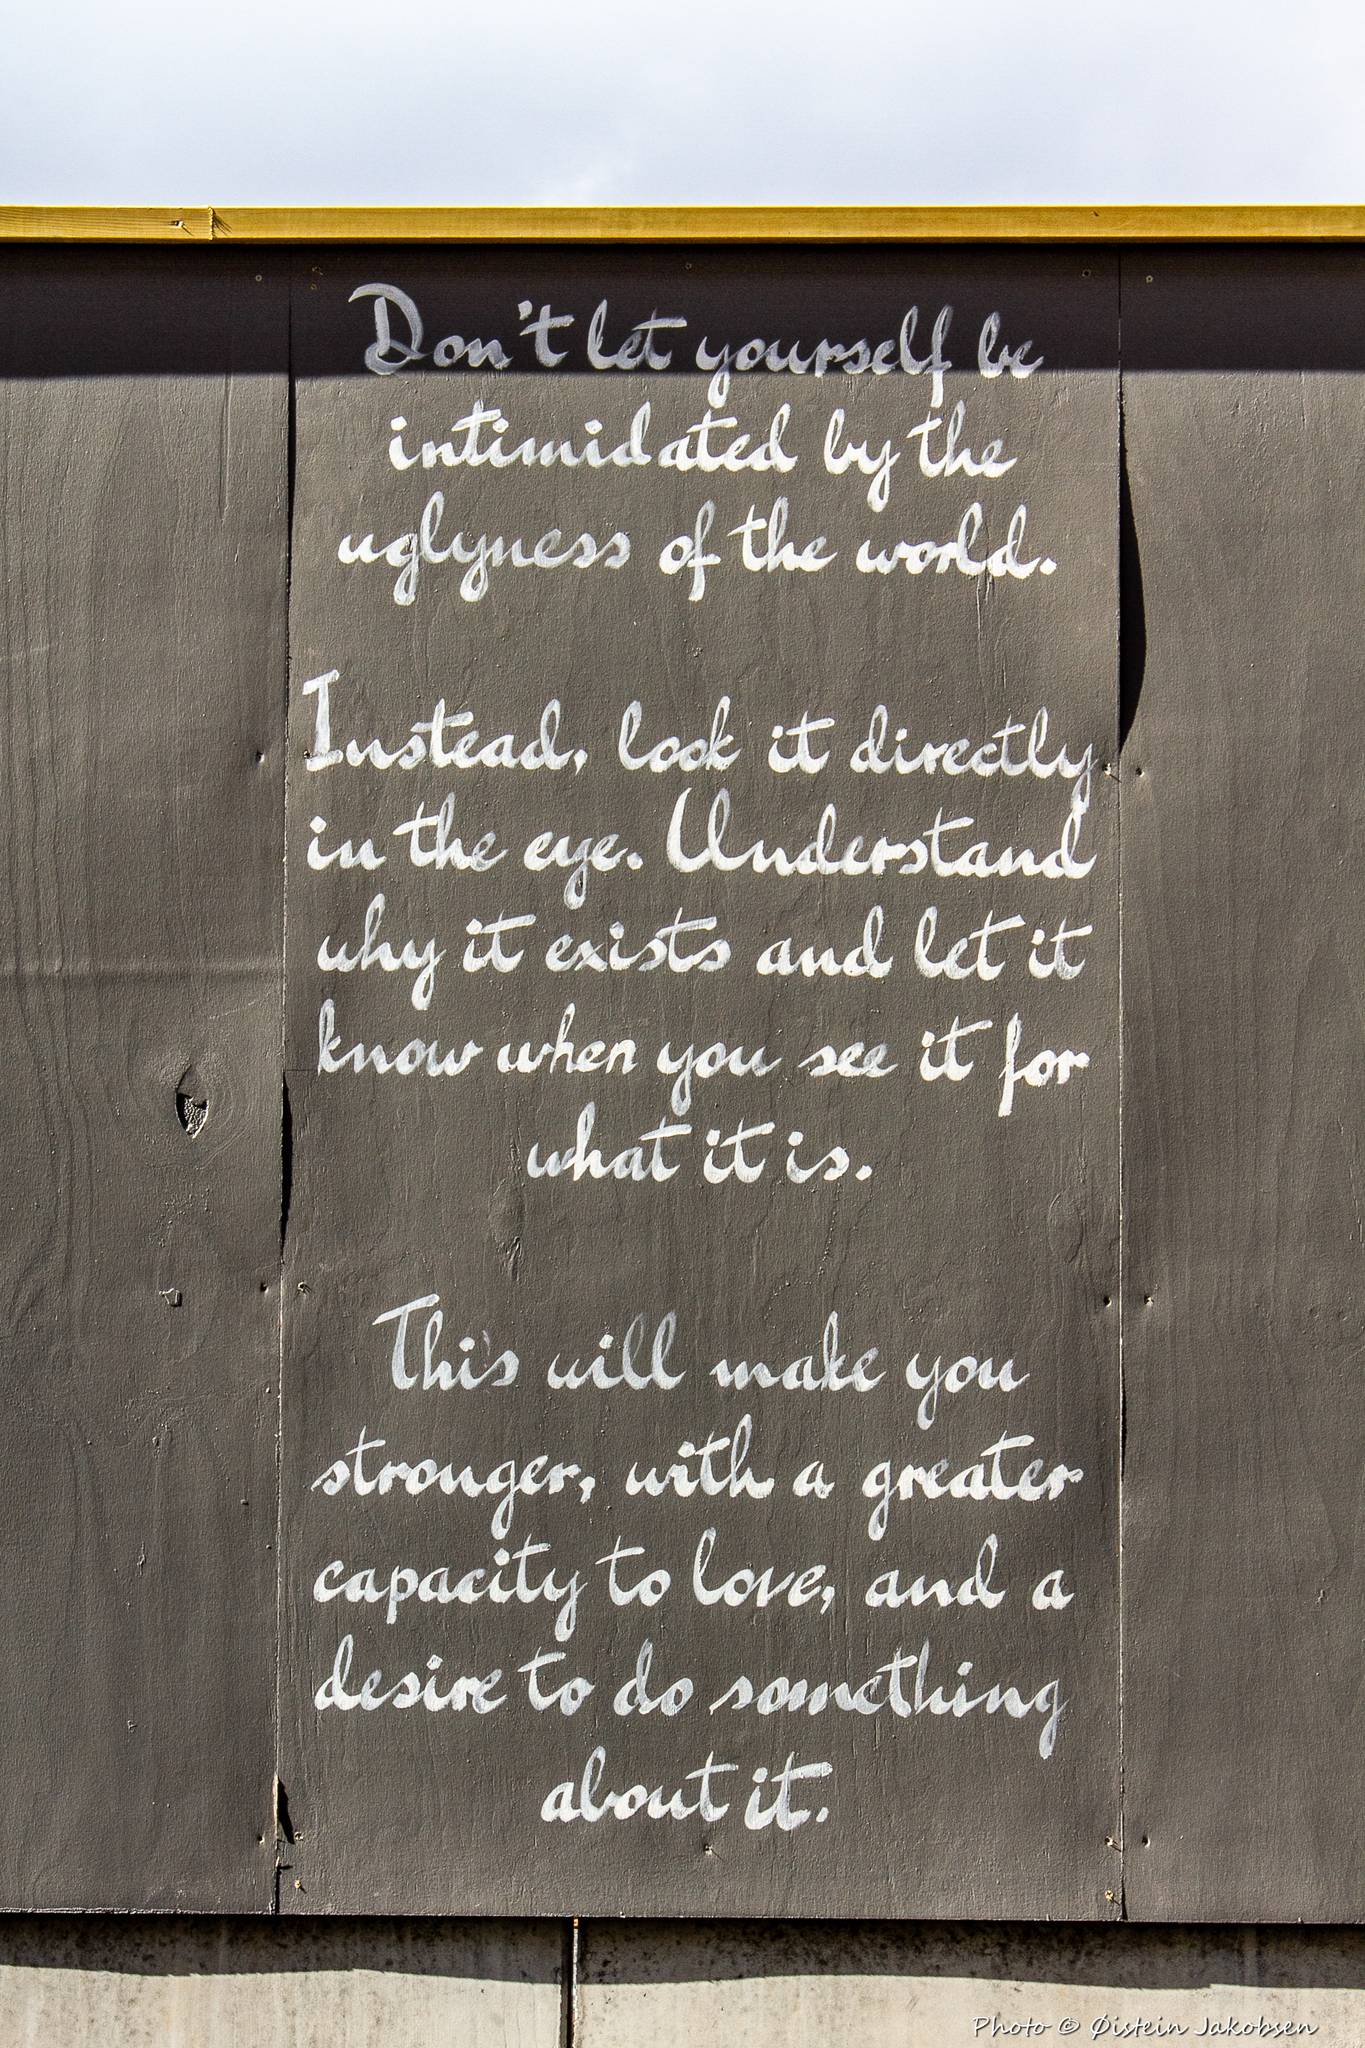 Don't let yourself be
intimidated by the
uglyness of the world.
Instead, look it directly
in the eye. Understand
why it exists and let it
know when you see it for
what it is.
This will make you
stronger, with a greater
capacity to love, and a
desire to do something
about it.
Photo © Øistein Jakobsen